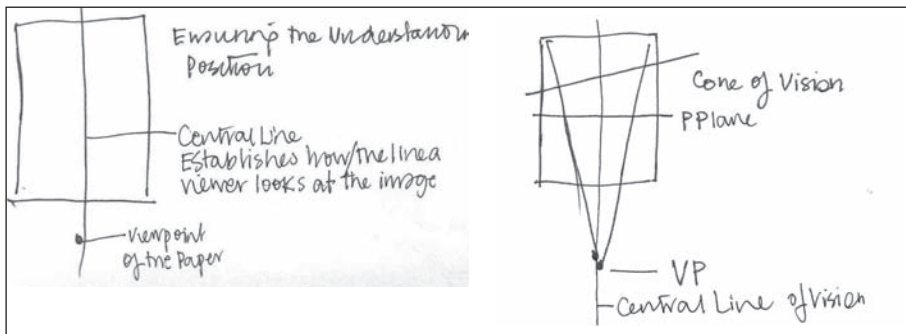 Ensuring the Understandin
Position
Central Line
Establishes how/the linea
viewer looks at the image
Viewpoint
of the Paper
Cone of Vision
PPlane
VP
Central Line of Vision